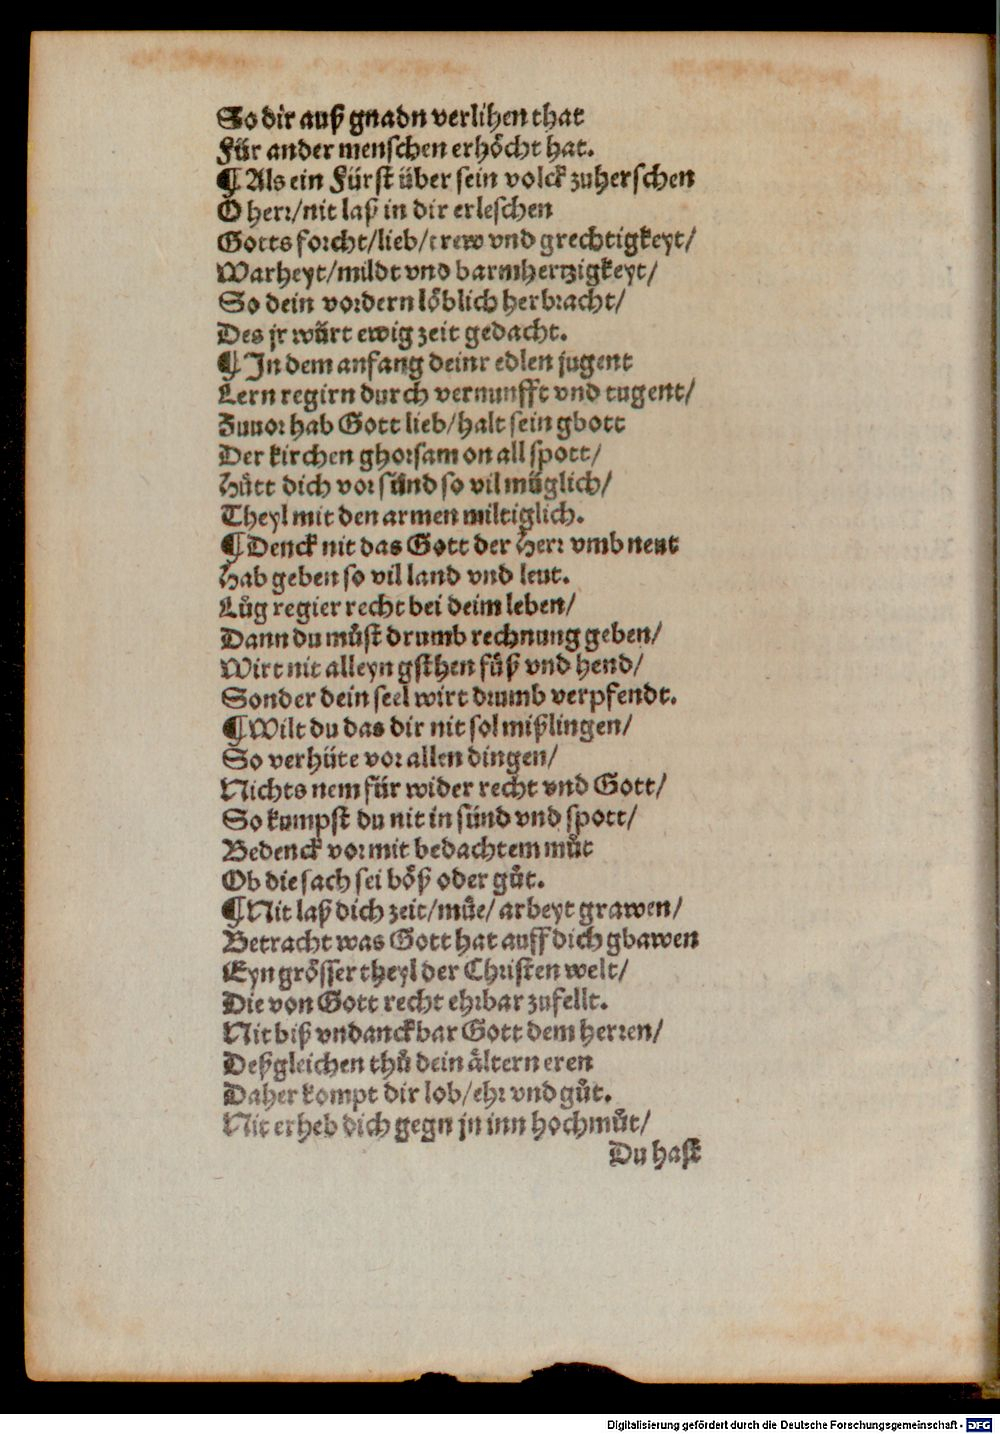 So dir auß gnadn verlihen that
Für ander menschen erhöcht hat.
¶ Als ein Fürst über sein volck zuherschen
O herr/nit laß in dir erleschen
Gotts forcht/lieb/trew vnd grechtigkeyt/
Warheyt/mildt vnd barmhertzigkeyt/
So dein vordern löblich herbracht/
Des jr würt ewig zeit gedacht.
¶ In dem anfang deinr edlen jugent
Lern regirn durch vernunfft vnd tugent/
Zuuor hab Gott lieb/halt sein gbott
Der kirchen ghorsam on all spott/
Hütt dich vor sünd so vil müglich/
Theyl mit den armen miltiglich.
¶ Denck nit das Gott der Herr vmb neut
Hab geben so vil land vnd leut.
Lůg regier recht bei deim leben/
Dann du můst drumb rechnung geben/
Wirt nit alleyn gsthen füß vnd hend/
Sonder dein seel wirt drumb verpfendt.
¶ Wilt du das dir nit sol mißlingen/
So verhüte vor allen dingen/
Nichts nem für wider recht vnd Gott/
So kumpst du nit in sünd vnd spott/
Bedenck vor mit bedachtem můt
Ob die sach sei böß oder gůt.
¶ Nit laß dich zeit/müe/ arbeyt grawen/
Betracht was Gott hat auff dich gbawen
Eyn grösser theyl der Christen welt/
Die von Gott recht ehrbar zufellt.
Nit biß vndanckbar Gott dem herren/
Deßgleichen thů dein ältern eren
Daher kompt dir lob/ehr vnd gůt.
Nit erheb dich gegn jn inn hochmůt/
Du hast
Digitalisierung gefördert durch die Deutsche Forschungsgemeinschaft - DFG